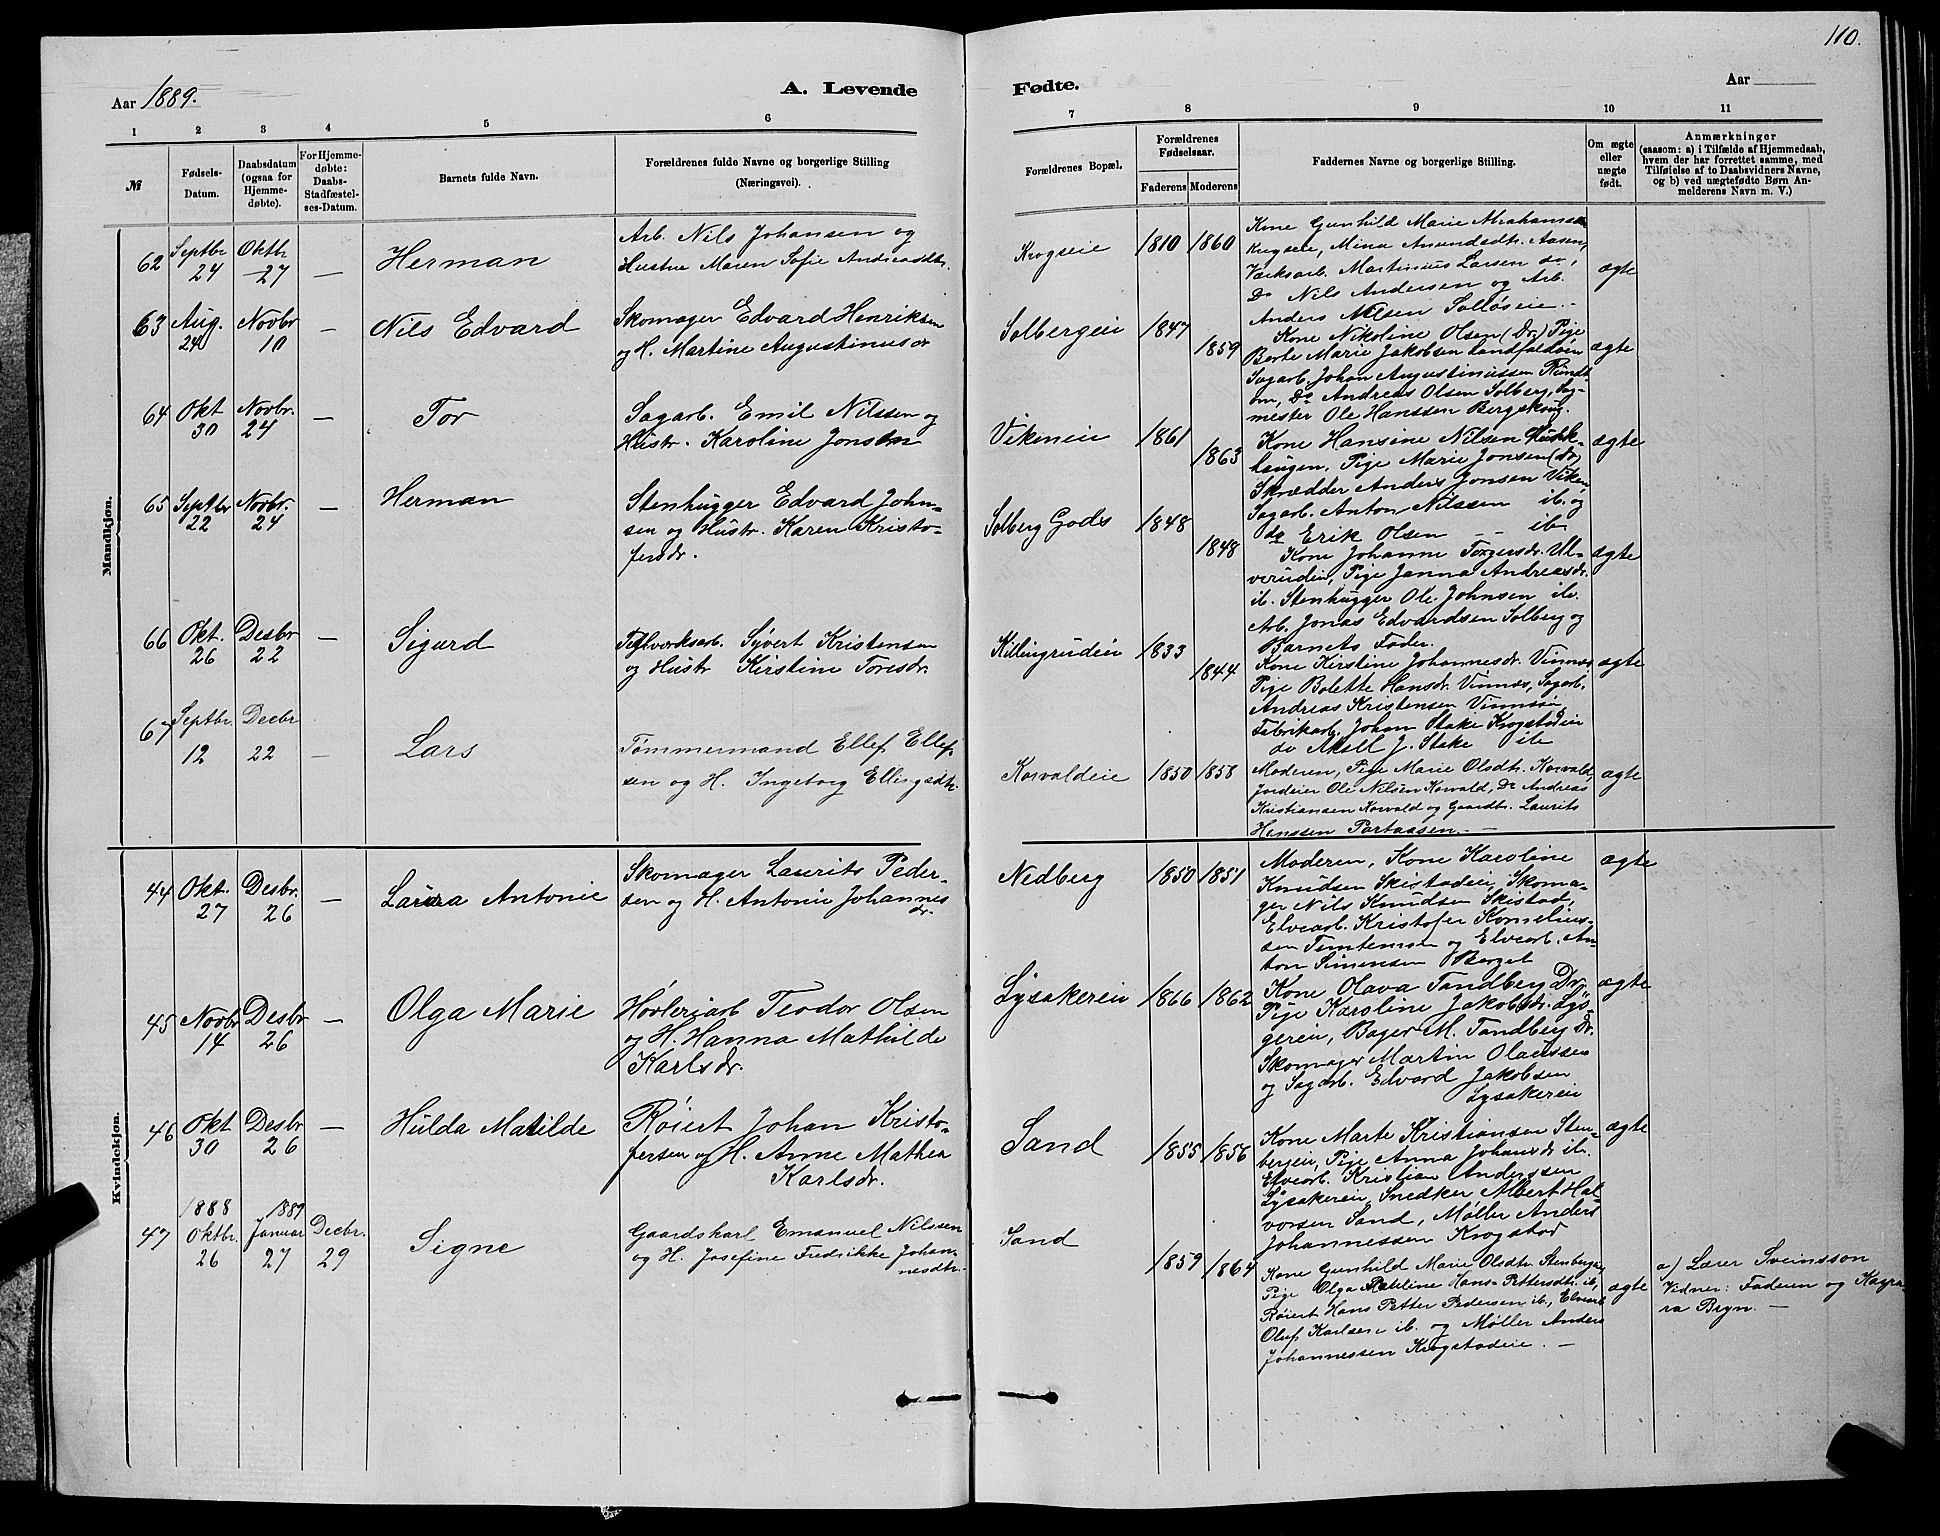 110.
Aar 1889.
A. Levende
Fødte.
Aar
1 2 3 4 5 6
7 8 9 10 11
№
Fødsels-
Datum.
Daabsdatum
(ogsaa for
Hjemme-
døbte).
For Hjemme-
døbte:
Daabs-
Stadfæstel-
ses-Datum.
Barnets fulde Navn.
Forældrenes fulde Navne og borgerlige Stilling
(Næringsvei).
Forældrenes Bopæl.
Forældrenes
Fødselsaar.
Faderens Moderens
Faddernes Navne og borgerlige Stilling.
Om ægte
eller
uægte
født.
Anmærkninger
(saasom: a) i Tilfælde af Hjemmedaab,
hvem der har forrettet samme, med
Tilføielse af to Daabsvidners Navne,
og b) ved uægtefødte Børn An-
melderens Navn m. V.)
Mandkjøn.
62 Septbr 24 Oktbr 27 — Herman
Arb. Nils Johansen og
Hustru Maren Sofie Andreasdtr.
Krogseie 1810 1860
Kone Gunhild Marie Abrahamsen
Krogseie, Mina Amundsdtr. Aasen,
Værksarb. Martinius Larsen do,
Do Nils Andersen og Arb.
Anders Nilsen Solløseie. —
ægte
63 Aug. 24 Novbr 10 — Nils Edvard
Skomager Edvard Henriksen
og H. Martine Augustinusdr
Solbergeie 1847 1859
Kone Nikoline Olsen (Dr.) Pige
Berte Marie Jakobsen Landfaldøien
Sagarb. Johan Augustinussen Rundt
om, Do Andreas Olsen Solberg, Sag-
mester Ole Hanssen Bergskoug.
ægte
64 Okt 30 Novbr. 24 — Tor
Sagarb. Emil Nilssen og
Hustr. Karoline Jonsen
Vikeneie 1861 1863
Kone Hansine Nilsen
haugen, Pige Marie Jonsen (Dr)
Skrædder Anders Jonsen Viken
Sagarb. Anton Nilssen ib. og
do Erik Olsen — ib
ægte
65 Septbr 22 Novbr. 24 — Herman
Stenhugger Edvard John-
sen og Hustr. Karen Kristo-
fersdr.
Solberg Gods 1848 1848
Kone Johanne Torgersdr. Ul-
verudeie, Pige Janna Andreasdr.
ib. Stenhugger Ole Johnsen ib.
Arb. Jonas Edvardsen Solberg og
Barnets Fader.
ægte
66 Okt. 26 Desbr 22 — Sigurd
Teglværksarb. Syvert Kristensen
og Hustr Kirstine Toresdr.
Killingrudeie 1833 1844
Kone Kirstine Johannesdr. Vinnæs
Pige Bolette Hansdr. Vinnæs, Sagarb.
Andreas Kristensen
Fabrikarb. Johan Stake Krogstadeie
do Aksel J. Stake ib
ægte
67 Septbr 12 Decbr 22 — Lars
Tømmermand Ellef Ellef-
sen og H. Ingeborg Ellingsdtr.
Korvaldeie 1850 1858
Moderen, Pige Marie Olsdtr. Korvald,
Jordeier Ole Nilsen Korvald, Do Andreas
Kristiansen Korvald og Gaardbr. Laurits
Hanssen Portaasen. —
ægte
Kvindekjøn.
44 Okt. 27 Desbr. 26 — Laura Antonie
Skomager Laurits Peder-
sen og H. Antonie Johannes
dr.
Nedberg 1850 1851
Moderen, Kone Karoline
Knudsen Skistadeie, Skoma-
ger Nils Knudsen Skistad,
Elvearb. Kristofer Kornelius-
sen Tømtemoen og Elvearb. An-
ton Simensen Berget
ægte
45 Novbr 14 Desbr 26 — Olga Marie
Høvleriarb Teodor Olsen
og H. Hanna Mathilde
Karlsdr.
Lysakereie 1866 1862
Kone Olava Tandberg Dr.
Pige Karoline Jakobsdr. Lys-
gereie, Bager M. Tandberg Dr.
Skomager Martin Olaussen
og Sagarb. Edvard Jakobsen
Lysakereie
ægte
46 Okt 30 Desbr 26 — Hulda Matilde
Røiert Johan Kristo-
fersen og H. Anne Mathea
Karlsdr.
Sand 1855 1856
Kone Marte Kristiansen Sten-
bergeie, Pige Anna Johansdr ib.
Elvearb. Kristian Anderssen
Lysakereie, Snedker Albert Hal-
vorsen Sand, Møller Anders
Johannessen Krogstad
ægte
47 1888 Oktbr. 26 1889 Januar 27 Decbr. 29 Signe
Gaardskarl Emanuel Nilssen
og H. Josefine Fredrikke Johan-
nesdtr.
Sand 1859 1864
Kone Gunhild Marie Olsdtr Stenberge,
Pige Olga Pauline Hans-Pettersdtr. ib,
Røiert Hans Petter Pedersen ib., Elvearb
Oluf Karlsen ib. og Møller Anders
Johannessen Krogstadeie. —
ægte
a) Lærer Sveinsson
Vidner: Faderen og
Bryn. —